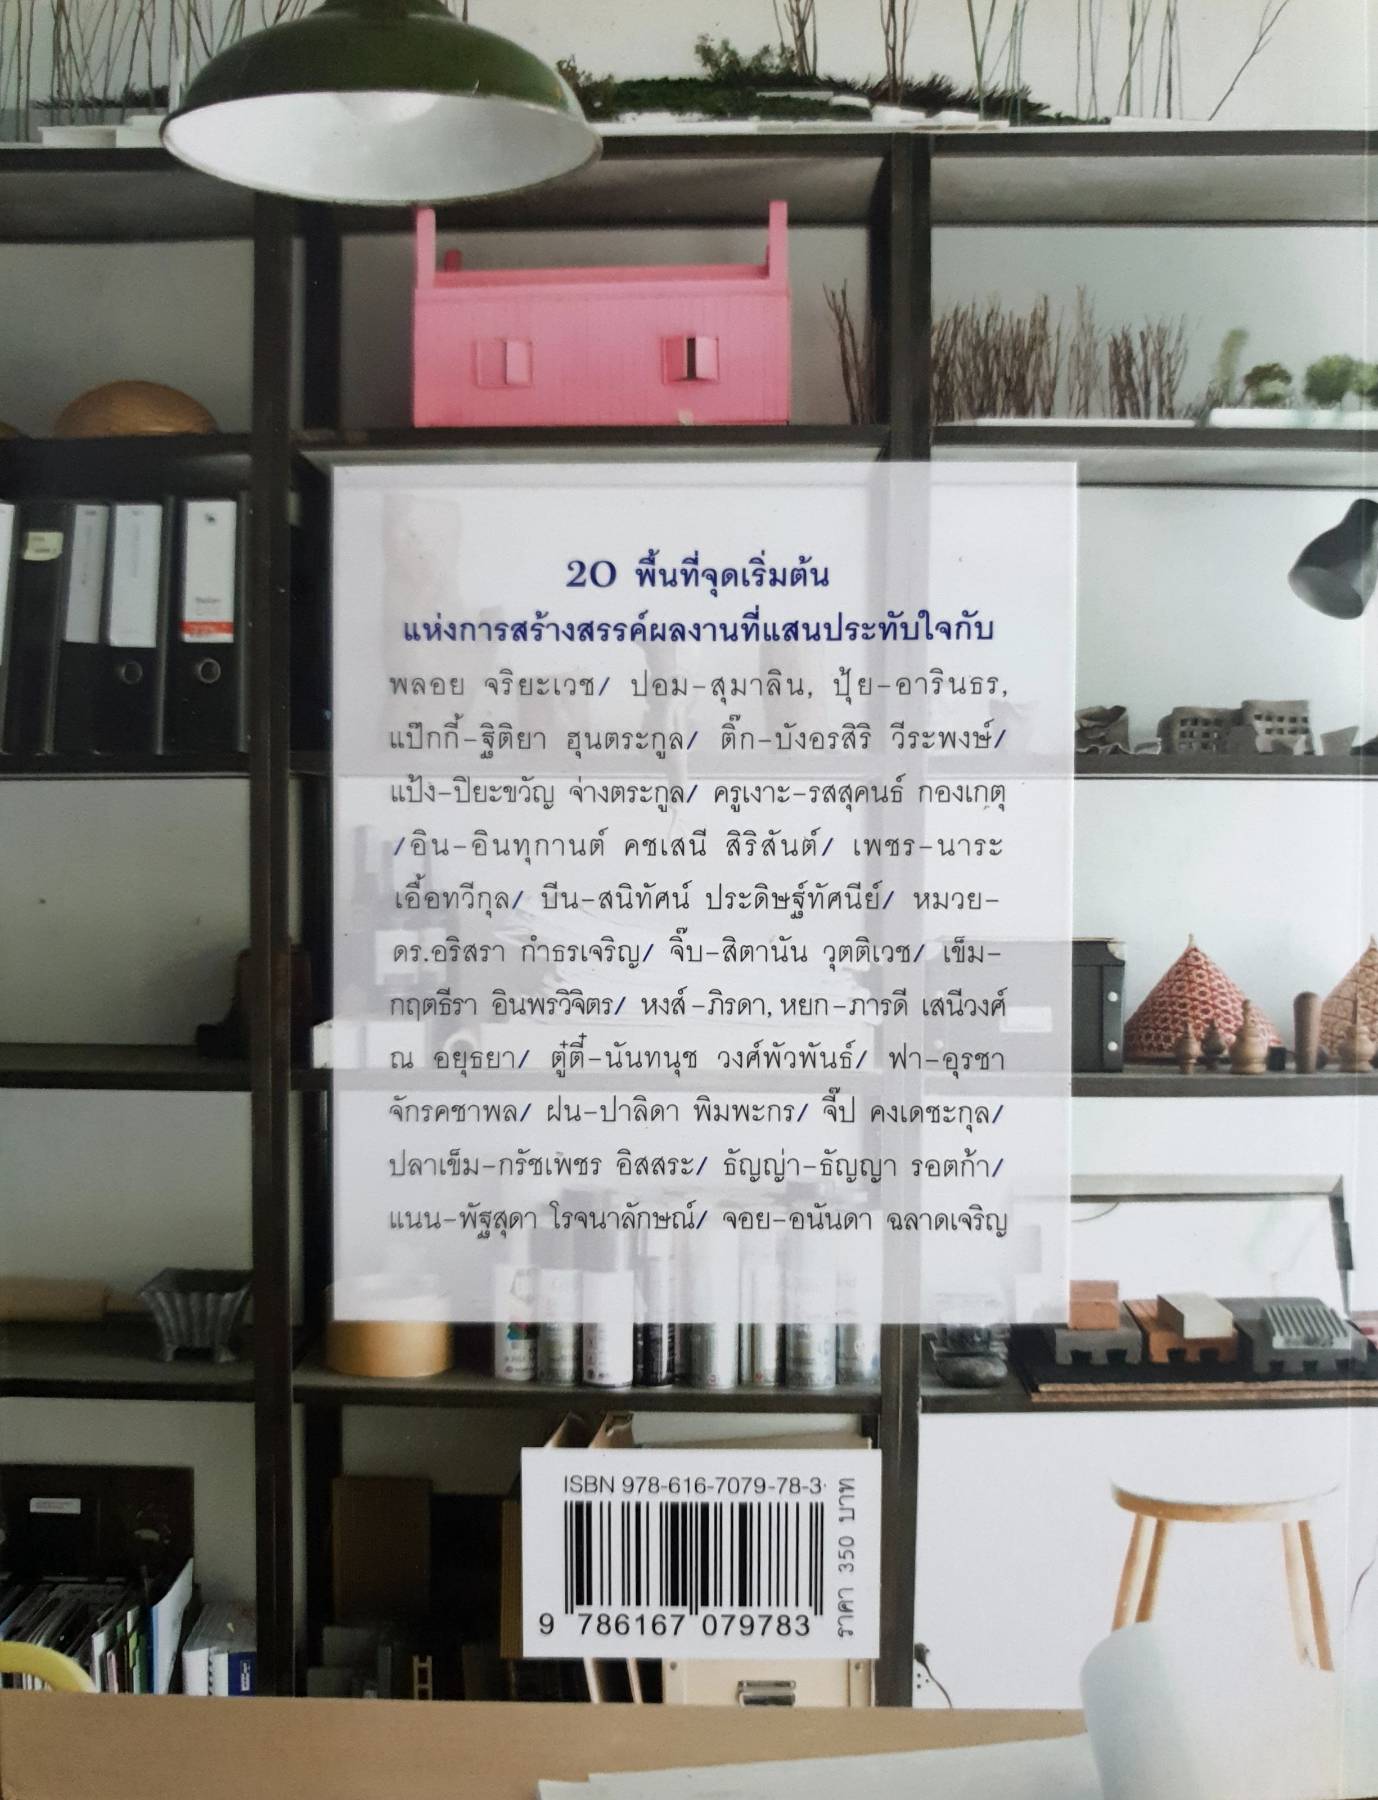 20 พื้นที่จุดเริ่มต้น
แห่งการสร้างสรรค์ผลงานที่แสนประทับใจกับ
พลอย จริยะเวช/ ปอม-สุมาลิน, ปุ้ย-อารินธร,
แป๊กกี้-ฐิติยา ฮุนตระกูล/ ติ๊ก-บังอรสิริ วีระพงษ์/
แป้ง-ปิยะขวัญ จ่างตระกูล/ ครูเงาะ-รสสุคนธ์ กองเกตุ
/อิน-อินทุกานต์ คชเสนี สิริสันต์/ เพชร-นาระ
เอื้อทวีกุล/ บีน-สนิทัศน์ ประดิษฐ์ทัศนีย์/ หมวย-
ดร.อริสรา กำธรเจริญ/ จิ๊บ-สิตานัน วุตติเวช/ เข็ม-
กฤตธีรา อินพรวิจิตร/ หงส์-ภิรดา, หยก-ภารดี เสนีวงศ์
ณ อยุธยา/ ตู๋ตี๋-นันทนุช วงศ์พัวพันธ์/ ฟา-อุรชา
จักรคชาพล/ ฝน-ปาลิดา พิมพะกร/ จี๊ป คงเดชะกุล/
ปลาเข็ม-กรัชเพชร อิสสระ/ ธัญญ่า-ธัญญา รอตก้า/
แนน-พัฐสุดา โรจนาลักษณ์/ จอย-อนันดา ฉลาดเจริญ
ISBN 978-616-7079-78-3
9 786167 079783
ราคา 350 บาท